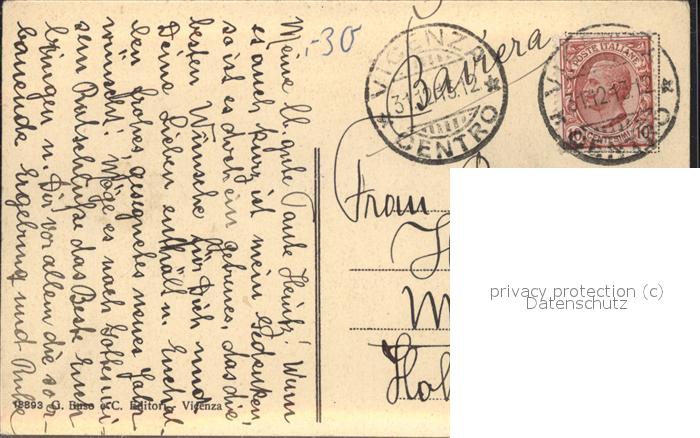 Meine lb. gute Tante Heintz! Wenn
es auch kurz ist mein Gedenken,
so ist es doch ein getreues, das die
besten Wünsche für Dich und
Deine Lieben enthält u. Euch
ein frohes, gesegnetes neues Jahr
wünscht! Möge es nach Gottes
sein Ratschluße das Beste Euch
bringen u. Dir vor allem die
Ergebung und Ruhe
-30
VICENZA
31.12.13.12
CENTRO
Baviera
POSTE ITALIANE
10 CENTESIMI 10
VICENZA
CENTRO
Frau
M
Hoh
privacy protection (c)
Datenschutz
18893 G. Buso e C. Editori - Vicenza